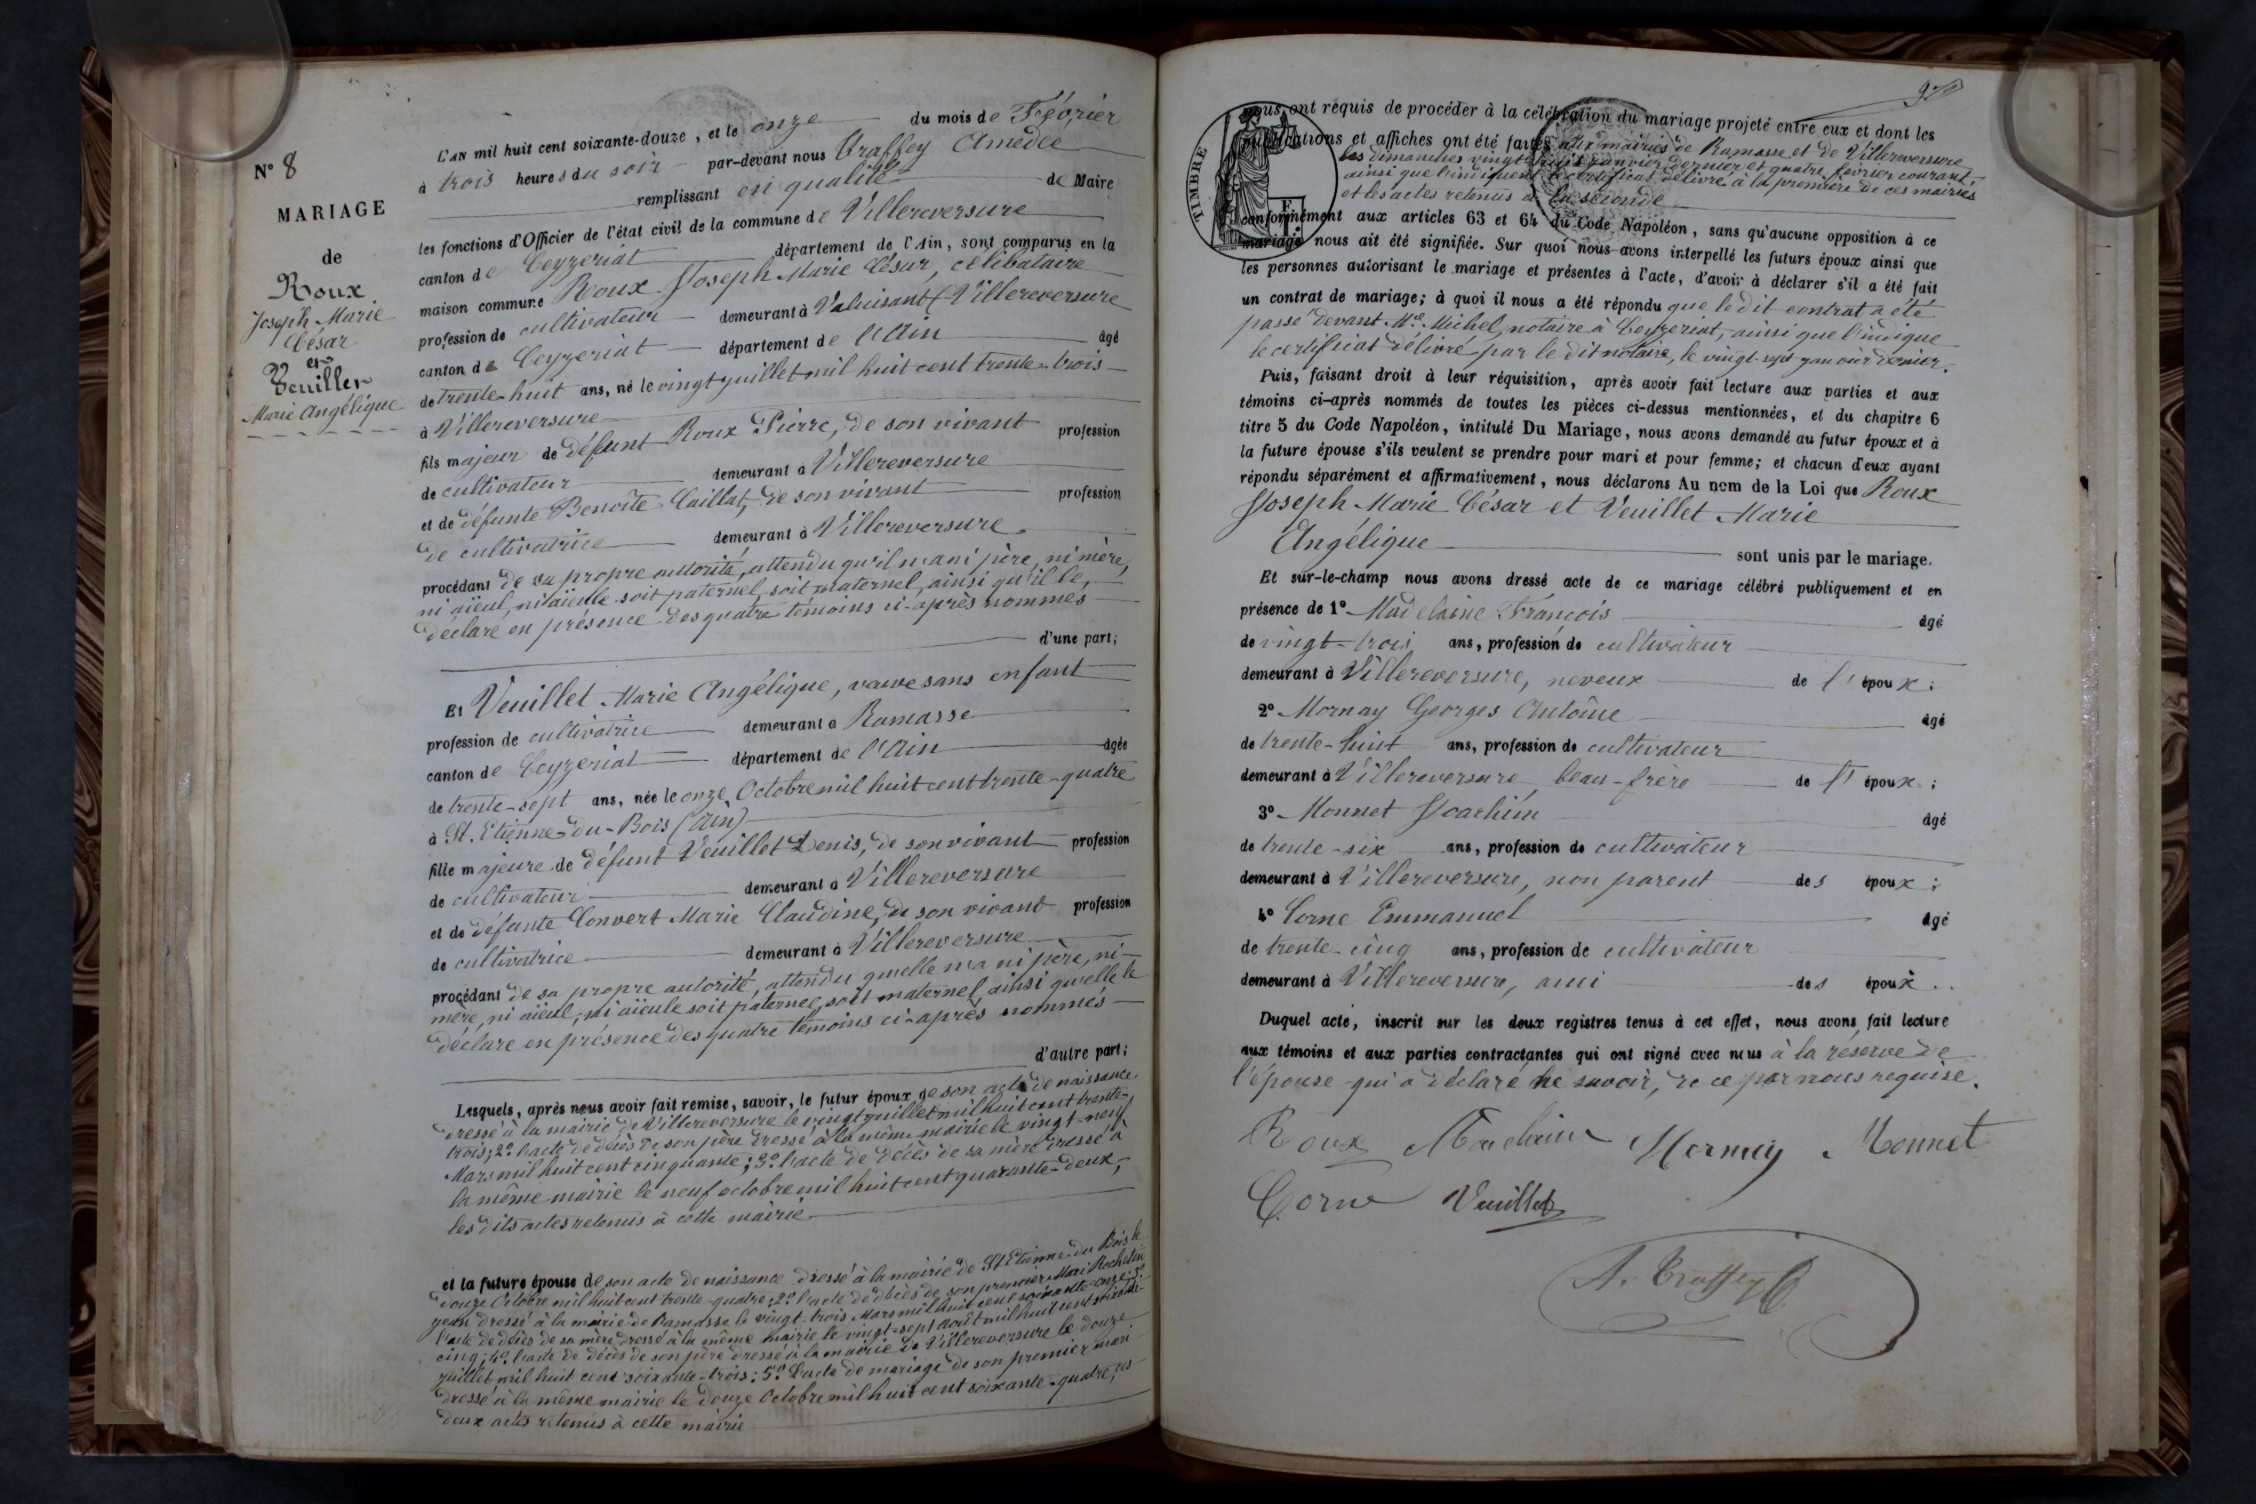 N° 8
MARIAGE
de
Roux
Joseph Marie
César
et
Veuillet
Marie Angélique
L'AN mil huit cent soixante-douze, et le onze du mois de Février
à trois heures du soir par-devant nous Traffey Amédée
remplissant en qualité de Maire
les fonctions d'Officier de l'état civil de la commune de Villereversure
canton de Ceyzériat département de l'Ain, sont comparus en la
maison commune Roux Joseph Marie César, célibataire
profession de cultivateur demeurant à Valuisant (Villereversure
canton de Ceyzeriat département de l'Ain âgé
de trente-huit ans, né le vingt juillet mil huit cent trente-trois
à Villereversure
fils majeur de défunt Roux Pierre, de son vivant profession
de cultivateur demeurant à Villereversure
et de défunte Benoîte Caillat, de son vivant profession
de cultivatrice demeurant à Villereversure.
procédant de sa propre autorité, attendu qu'il n'a ni père, ni mère,
ni aïeul, ni aïeule soit paternel, soit maternel, ainsi qu'il le,
déclare en présence des quatre témoins ci-après nommés
d'une part;
Et Veuillet Marie Angélique, veuve sans enfant
profession de cultivatrice demeurant à Ramasse
canton de Ceyzeriat département de l'Ain âgée
de trente-sept ans, née le onze Octobre mil huit cent trente-quatre
à St. Etienne-du-Bois (Ain)
fille majeure de défunt Veuillet Denis, de son vivant profession
de cultivateur demeurant à Villereversure
et de défunte Convert Marie Claudine, de son vivant profession
de cultivatrice demeurant à Villereversure
procédant de sa propre autorité, attendu quelle n'a ni père, ni
mère, ni aïeul, ni aïeule soit paternel, soit maternel, ainsi qu'elle le
déclare en présence des quatre témoins ci-après nommés
d'autre part;
Lesquels, après nous avoir fait remise, savoir, le futur époux de son acte de naissance
dressé à la mairie de Villereversure le vingt juillet mil huit cent trente-
trois; 2° l'acte de décès de son père dressé à la même mairie le vingt-neuf
Mars mil huit cent cinquante; 3° l'acte de décès de sa mère dressé à
la même mairie le neuf octobre mil huit cent quarante-deux,
les dits actes retenus à cette mairie
et la future épouse de son acte de naissance dressé à la mairie de St Etienne du Bois le
douze Octobre mil huit cent trente-quatre; 2° l'acte de décès de son premier Mari Rochetin
Jean dressé à la mairie de Ramasse le vingt-trois Mars mil huit cent soixante-onze; 3°
l'acte de décès de sa mère dressé à la même mairie le vingt-sept août mil huit cent soixante-
cinq; 4° l'acte de décès de son père dressé à la mairie de Villereversure le douze
juillet mil huit cent soixante-trois; 5° l'acte de mariage de son premier mari
dressé à la même mairie le douze Octobre mil huit cent soixante-quatre, ces
deux actes retenus à cette mairie
TIMBRE
nous ont requis de procéder à la célébration du mariage projeté entre eux et dont les
publications et affiches ont été faites aux mairies de Ramasse et de Villereversure
les dimanches vingt-huit janvier dernier et quatre février courant,
ainsi que l'indiquent le certificat délivré à la première de ces mairies
et les actes retenus à la seconde
conformément aux articles 63 et 64 du Code Napoléon, sans qu'aucune opposition à ce
mariage nous ait été signifiée. Sur quoi nous avons interpellé les futurs époux ainsi que
les personnes autorisant le mariage et présentes à l'acte, d'avoir à déclarer s'il a été fait
un contrat de mariage; à quoi il nous a été répondu que le dit contrat a été
passé devant Me. Michel, notaire à Ceyzeriat, ainsi que l'indique
le certificat délivré par le dit notaire, le vingt-sept janvier dernier.
Puis, faisant droit à leur réquisition, après avoir fait lecture aux parties et aux
témoins ci-après nommés de toutes les pièces ci-dessus mentionnées, et du chapitre 6
titre 5 du Code Napoléon, intitulé Du Mariage, nous avons demandé au futur époux et à
la future épouse s'ils veulent se prendre pour mari et pour femme; et chacun d'eux ayant
répondu séparément et affirmativement, nous déclarons Au nom de la Loi que Roux
Joseph Marie César et Veuillet Marie
Angélique sont unis par le mariage.
Et sur-le-champ nous avons dressé acte de ce mariage célébré publiquement et en
présence de 1° Madelaine François âgé
de vingt-trois ans, profession de cultivateur
demeurant à Villereversure, neveux de l'époux;
2° Mornay Georges Antoine âgé
de trente-huit ans, profession de cultivateur
demeurant à Villereversure, beau-frère de l'époux;
3° Monnet Joachim âgé
de trente-six ans, profession de cultivateur
demeurant à Villereversure, non parent des époux;
4° Corne Emmanuel âgé
de trente-cinq ans, profession de cultivateur
demeurant à Villereversure, ami des époux.
Duquel acte, inscrit sur les deux registres tenus à cet effet, nous avons fait lecture
aux témoins et aux parties contractantes qui ont signé avec nous à la réserve de
l'épouse qui a déclaré ne savoir, de ce par nous requise.
Roux Madelaine Mornay Monnet
Corne Veuillet
A. Traffey